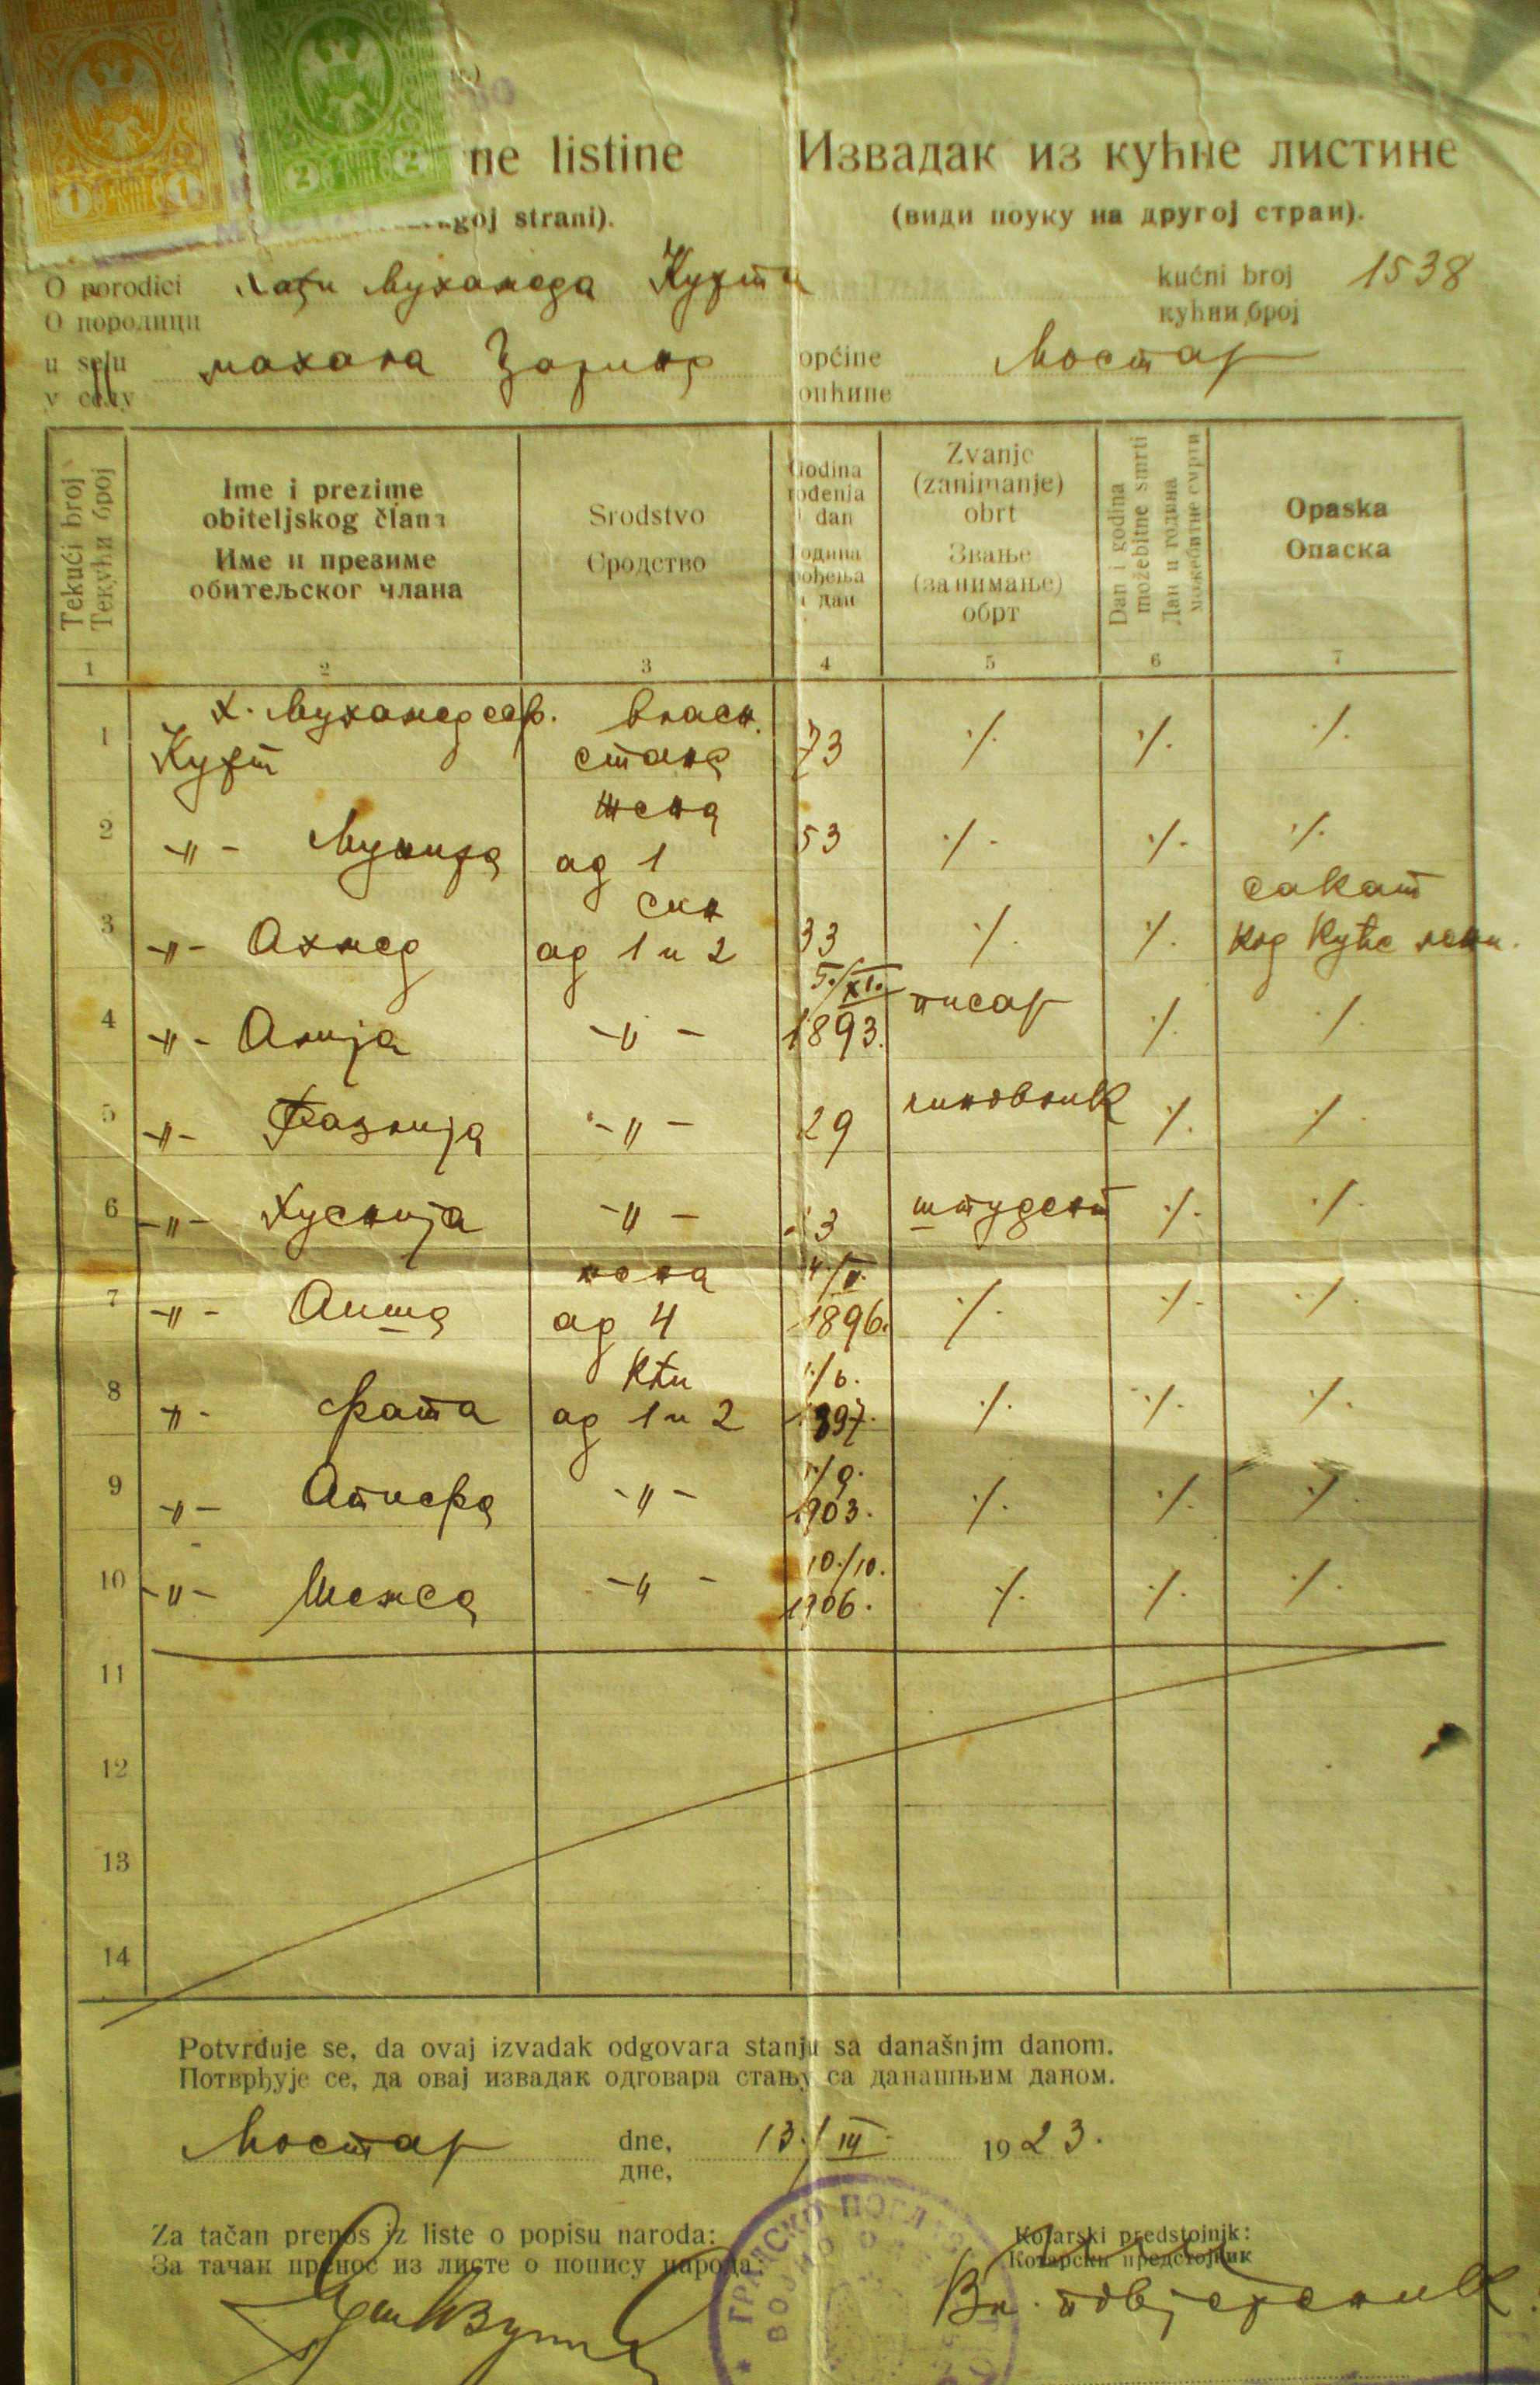 ne listine
Извадак из кућне листине
goj strani).
(види поуку на другој страи).
O porodici Мухамеда Курта kućni broj 1538
О породици кућни број
u selu махала općine Мостар
у селу опћине
Tekući broj
Текући број
Ime i prezime
obiteljskog člana
Име и презиме
обитељског члана
Srodstvo
Сродство
Godina
rođenja
i dan
Година
рођења
и дан
Zvanje
(zanimanje)
obrt
Звање
(занимање)
обрт
Dan i godina
možebitne smrti
Дан и година
можебитне смрти
Opaska
Опаска
1 2 3 4 5 6 7
Х. Мухамед власн.
1 Курт стана 73 ./. ./. ./.
жена
2 -"- Мунира ад 1 53 ./. ./. ./.
син сакат
3 -"- Ахмед ад 1 и 2 33 ./. ./. код куће
5./XI.
4 -"- Алија -"- 1893. писар ./. ./.
5 -"- Фазлија -"- 29 чиновник ./. ./.
6 -"- Хуснија -"- штудент ./. ./.
жена
7 -"- Аиша ад 4 1896. ./. ./. ./.
кћи
8 -"- Фата ад 1 и 2 1897. ./. ./. ./.
9 -"- Атифа -"- 1903. ./. ./. ./.
10./10.
10 -"- Шемса -"- 1906. ./. ./. ./.
11
12
13
14
Potvrđuje se, da ovaj izvadak odgovara stanju sa današnjim danom.
Потврђује се, да овај извадак одговара стању са данашњим даном.
Мостар dne, 13./III 1923.
дне,
Za tačan prenos iz liste o popisu naroda:
За тачан пренос из листе о попису народа:
Kotarski predstojnik:
Котарски предстојник
Вл. повјереник
ГРАДСКО ПОГЛ
ВОЈНО О